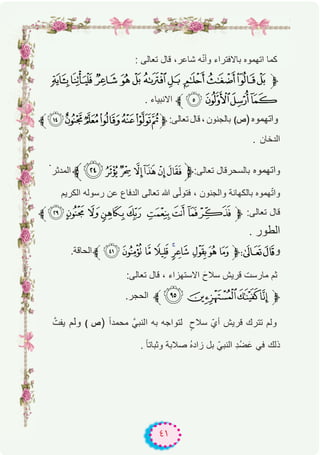 كما اتهموه بالافتراء وأنّه شاعر، قال تعالى :
﴿ بَلْ قَالُوٓا۟ أَضْغَٰثُ أَحْلَٰمٍۭ بَلِ ٱفْتَرَىٰهُ بَلْ هُوَ شَاعِرٌ فَلْيَأْتِنَا بِـَٔايَةٍ
كَمَآ أُرْسِلَ ٱلْأَوَّلُونَ ﴿٥﴾ ﴾ الانبياء .
واتهموه (ص) بالجنون ، قال تعالى: ﴿ ثُمَّ تَوَلَّوْا۟ عَنْهُ وَقَالُوا۟ مُعَلَّمٌ مَّجْنُونٌ ﴿١٤﴾ ﴾
الدخان .
واتهموه بالسحر قال تعالى: ﴿ فَقَالَ إِنْ هَٰذَآ إِلَّا سِحْرٌ يُؤْثَرُ ﴿٢٤﴾ ﴾ المدثر
واتّهموه بالكهانة والجنون ، فتولّى الله تعالى الدفاع عن رسوله الكريم
قال تعالى: ﴿ فَذَكِّرْ فَمَآ أَنتَ بِنِعْمَتِ رَبِّكَ بِكَاهِنٍ وَلَا مَجْنُونٍ ﴿٢٩﴾ ﴾
الطور .
و قَالَ تَعَالَىٰ: ﴿ وَمَا هُوَ بِقَوْلِ شَاعِرٍ ۚ قَلِيلًا مَّا تُؤْمِنُونَ ﴿٤١﴾ ﴾ الحاقة.
ثم مارست قريش سلاح الاستهزاء ، قال تعالى:
﴿ إِنَّا كَفَيْنَٰكَ ٱلْمُسْتَهْزِءِينَ ﴿٩٥﴾ ﴾ الحجر.
ولم تترك قريش أيّ سلاحٍ لتواجه به النبيَّ محمداً (ص ) ولم يفتُ
ذلك في عَضُدِ النبيّ بل زادهُ صلابة وثباتاً .
٤١